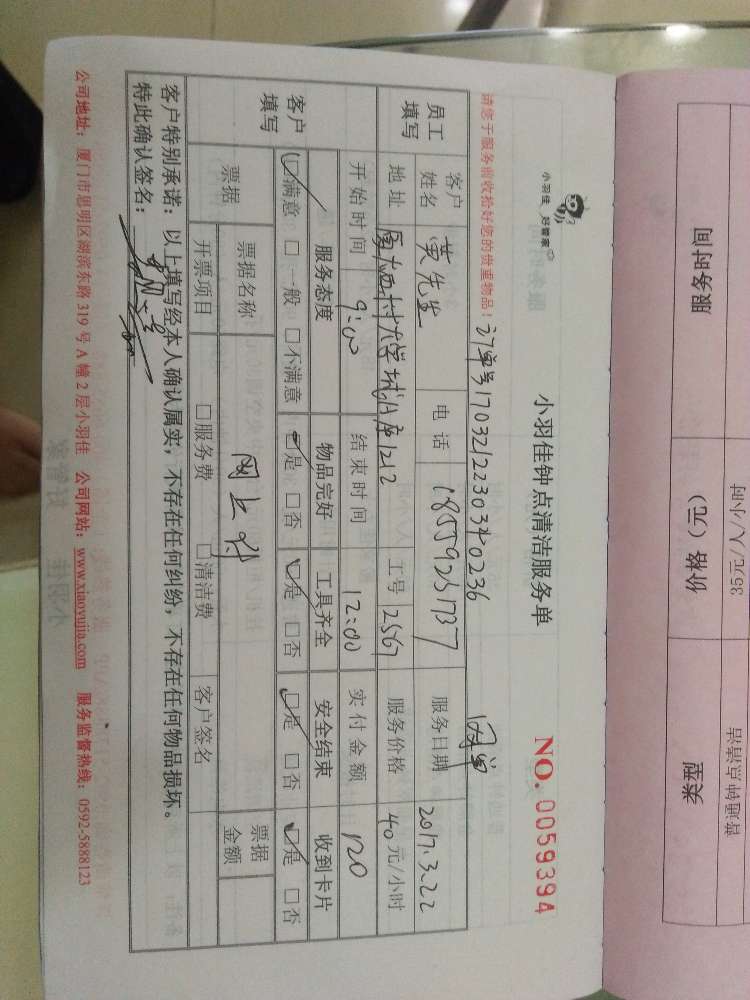 小羽佳 好管家
小羽佳钟点清洁服务单
NO. 0059394
请您于服务前收拾好您的贵重物品！
订单号
网单
员工填写 客户姓名 黄先生 电话 18559251737 服务日期 2017.3.22
地址 1212 工号 2567 服务价格 40元/小时
开始时间 9:00 结束时间 12:00 实付金额 120
客户填写 服务态度 物品完好 工具齐全 安全结束 收到卡片
☑满意 □一般 □不满意 ☑是 □否 ☑是 □否 ☑是 □否 ☑是 □否
票据 票据名称 网上 票据金额
开票项目 □服务费 □清洁费 客户签名
客户特别承诺：以上填写经本人确认属实，不存在任何纠纷，不存在任何物品损坏。
特此确认签名：
公司地址：厦门市思明区湖滨东路 319 号 A 幢 2 层小羽佳 公司网站：www.xiaoyujia.com 服务监督热线：0592-5888123
服务时间 价格（元） 类型
35元/人/小时 普通钟点清洁